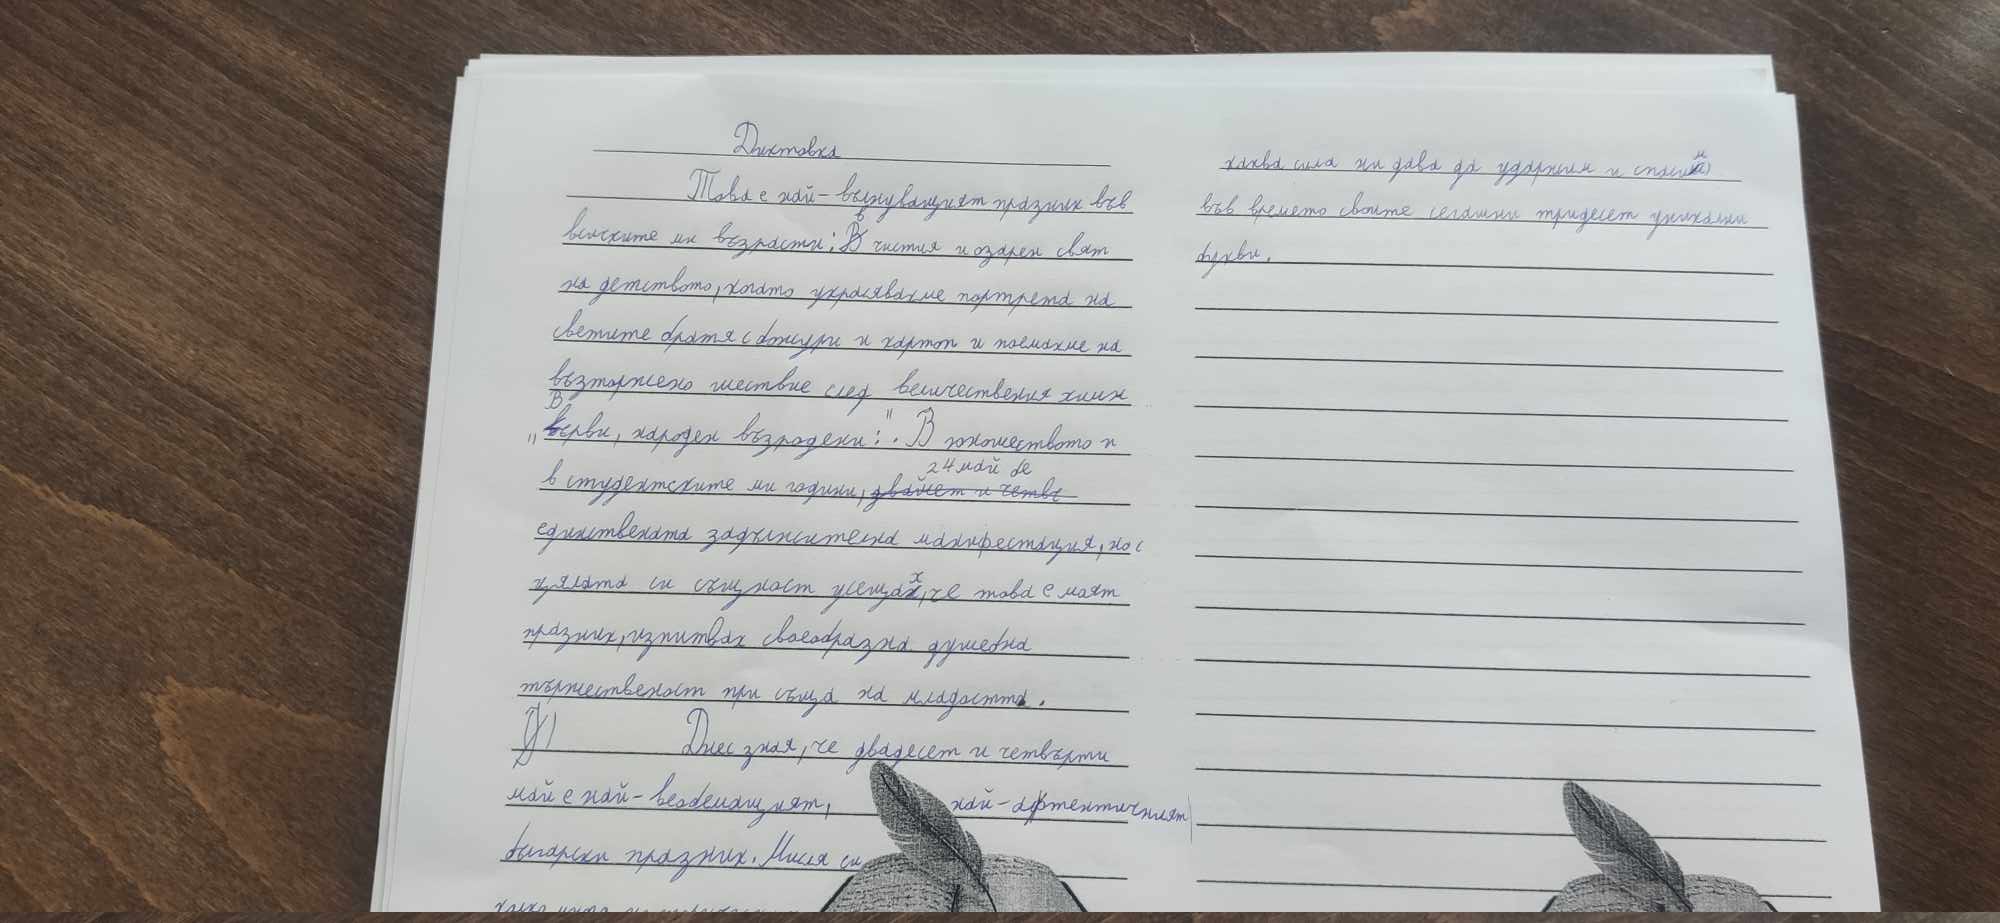 Диктовка
Това е най-вълнуващият празник във
всичките ми възрасти: в чистия и озарен свят
на детството, когато украсявахме портрета на
светите братя с божури и картон и поемахме на
възторжено шествие след величествения химн
"Върви, народен възродени:". В юношеството и
в студентските ми години, двайсет и четвъ 24 май бе
единствената задължителна манифестация, но с
цялата си същност усещах, че това е моят
празник, изпитвах своеобразна душевна
тържественост при съща на младостта.
Днес знам, че двадесет и четвърти
май е най-всеобемащият, най-афтентичният
български празник. Мисля си
каква сила ни дава да удържим и спасим
във времето своите сегашни тридесет уникални
букви.